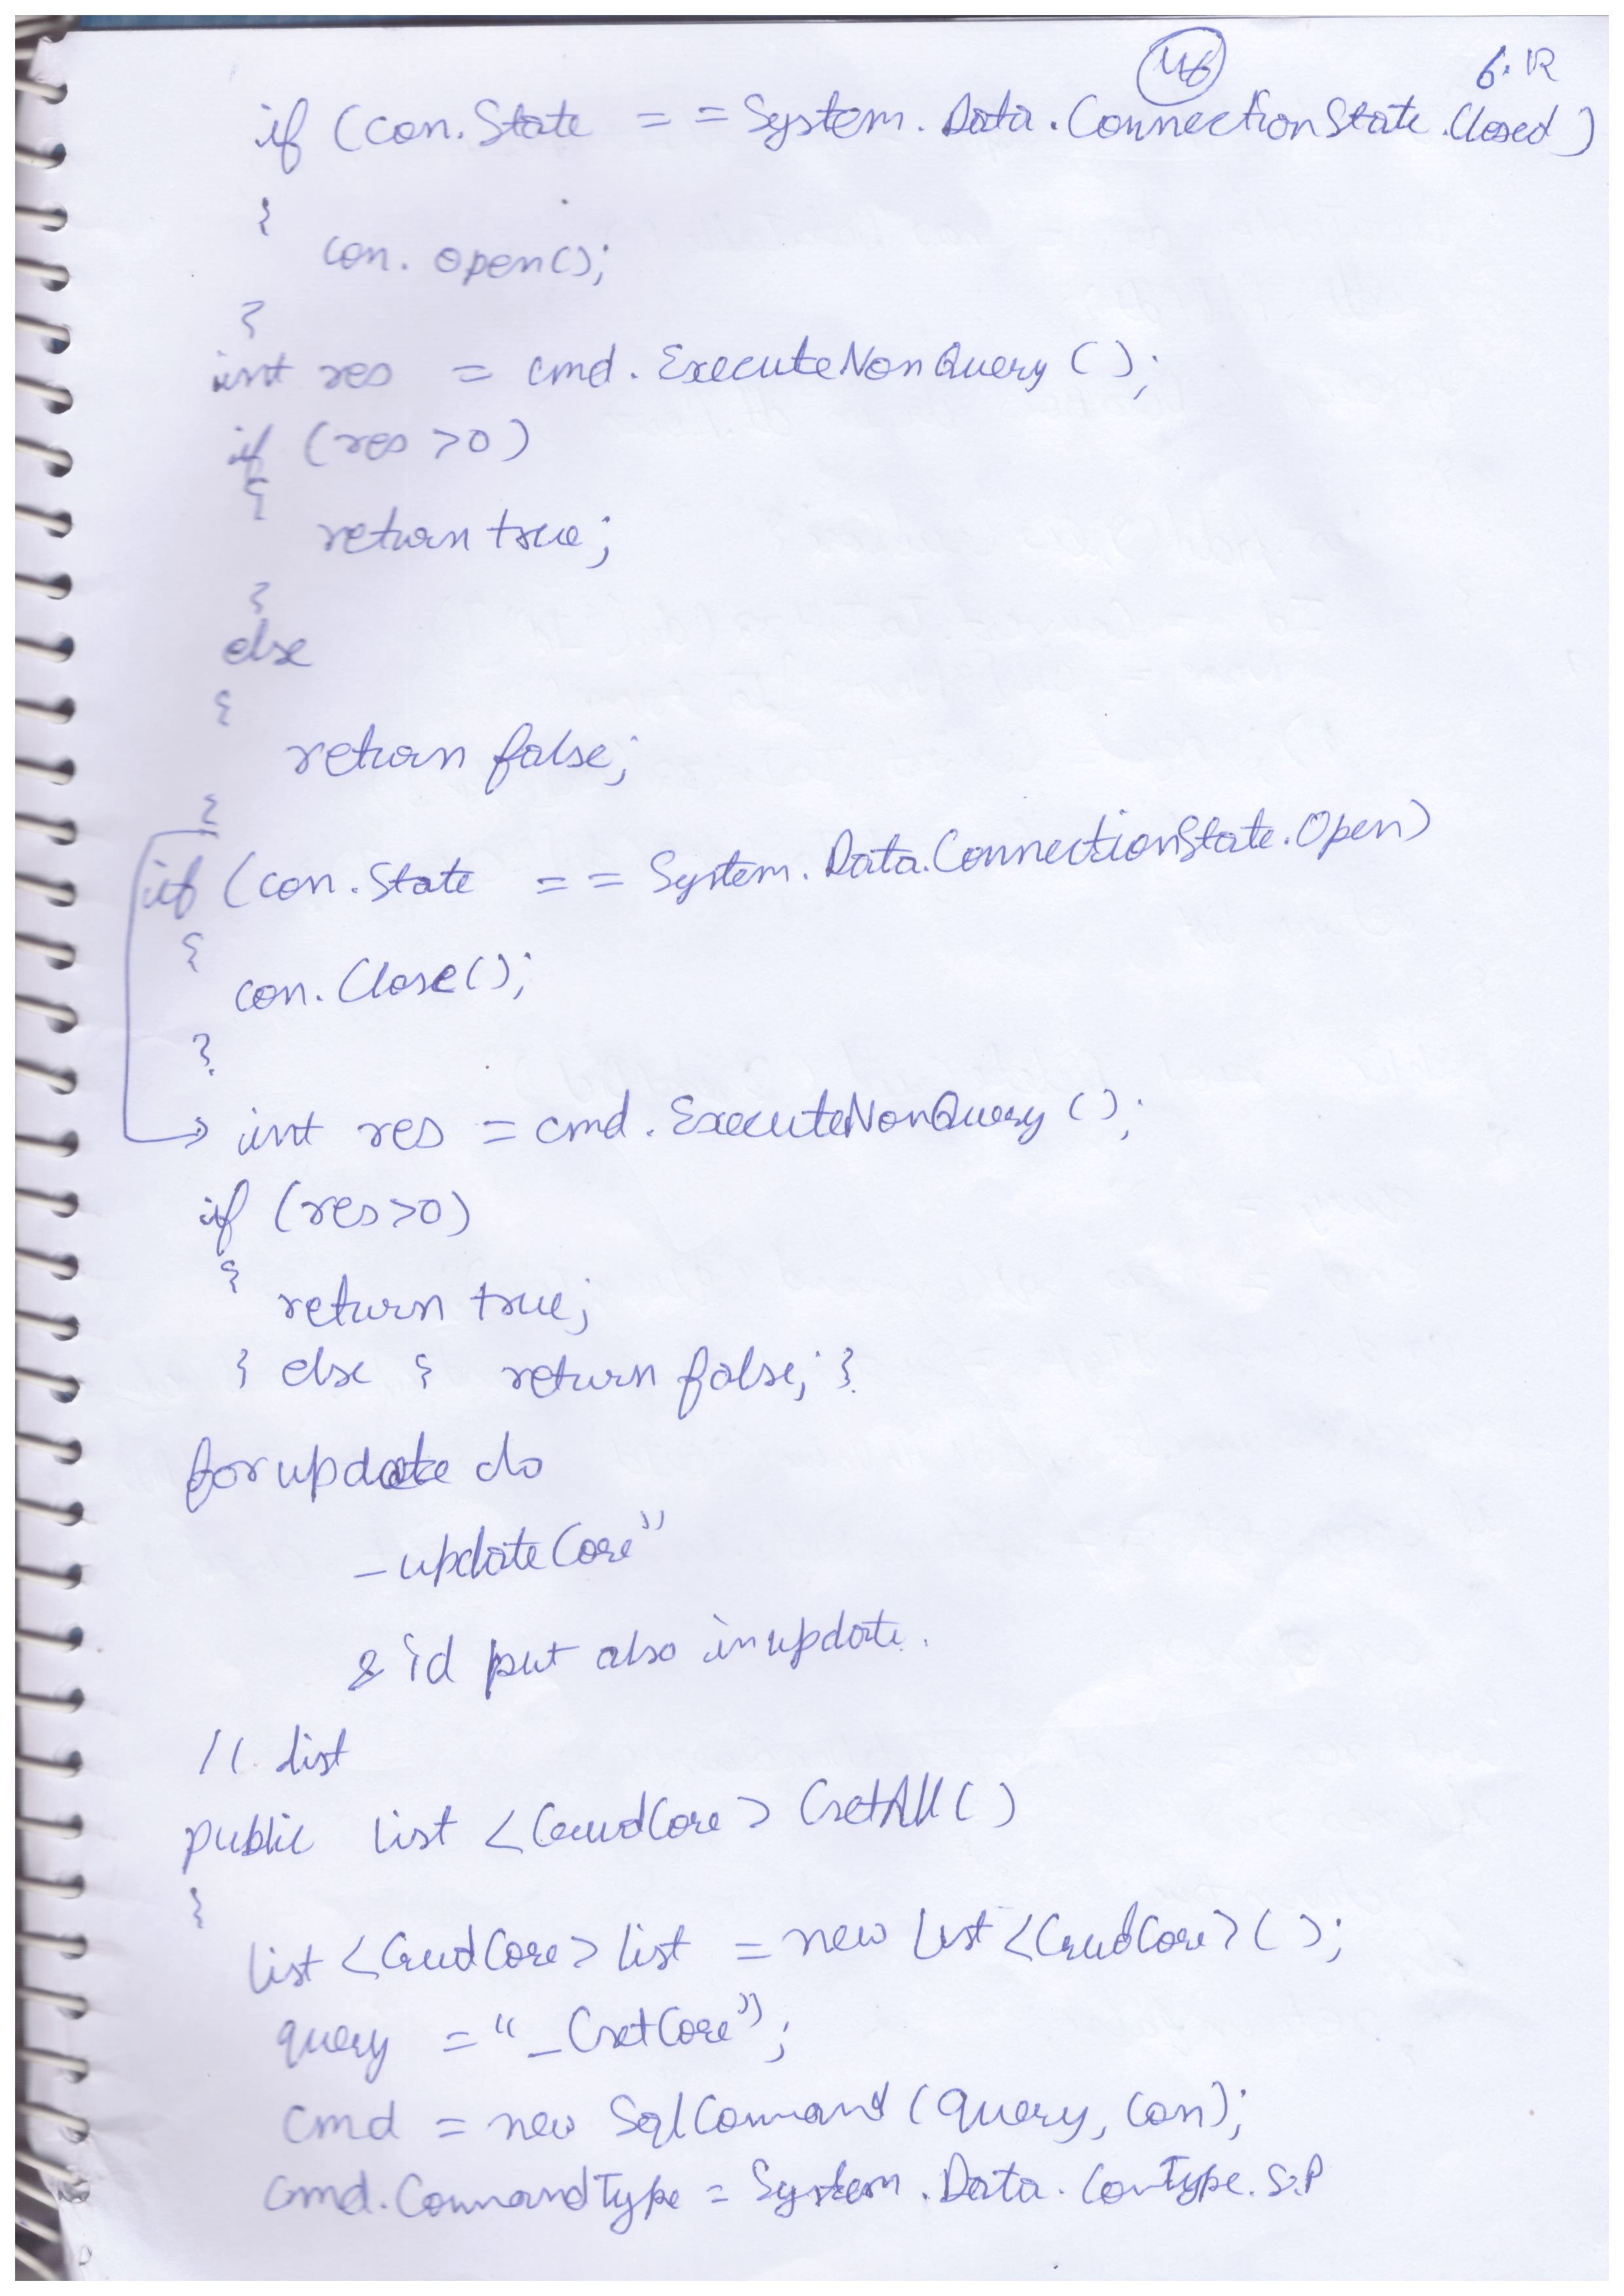 46 6.12
if (con.State == System.Data.ConnectionState.Closed)
{
con.open();
}
int res = cmd.ExecuteNonQuery();
if (res >0)
{
return true;
}
else
{
return false;
}
if (con.State == System.Data.ConnectionState.Open)
{
con.Close();
}
int res = cmd.ExecuteNonQuery();
if (res>0)
{
return true;
} else { return false; }
for update do
_updateCore"
& id put also in update.
// list
public List <CrudCore> GetAll()
{
List <CrudCore> list = new List <CrudCore>();
query = "_GetCore";
cmd = new SqlCommand (query, con);
cmd.CommandType = System.Data.ComType.S.P